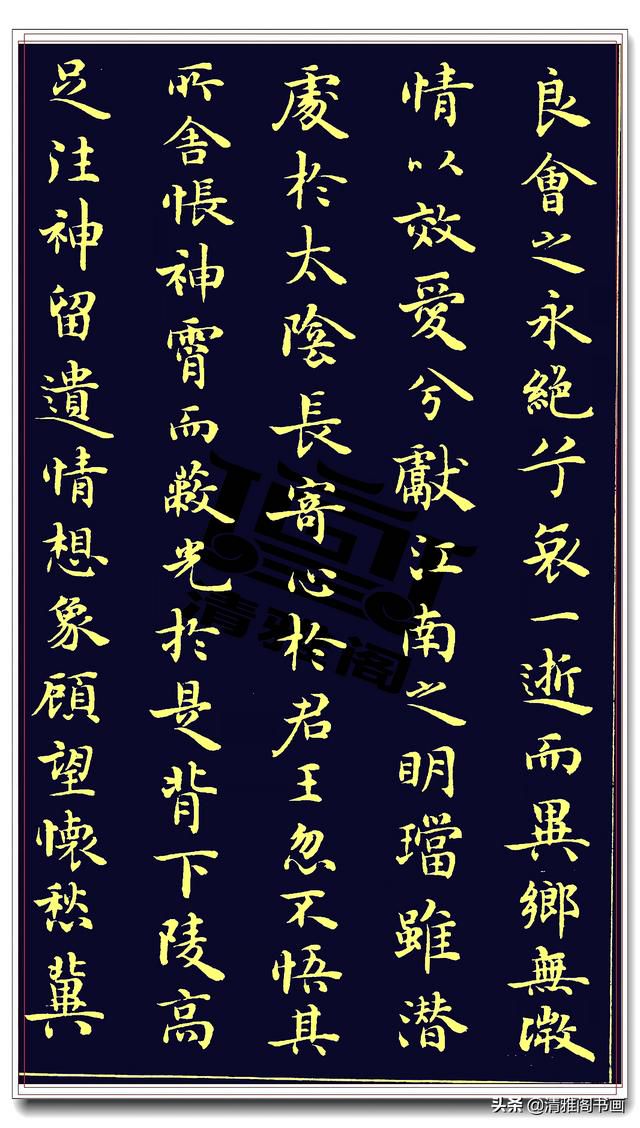 良會之永絕兮哀一逝而異鄉無澂
情以效愛兮獻江南之明璫雖潛
處於太陰長寄心於君王忽不悟其
所舍悵神霄而蔽光於是背下陵高
足往神留遺情想象顧望懷愁冀
清雅阁
头条 @清雅阁书画